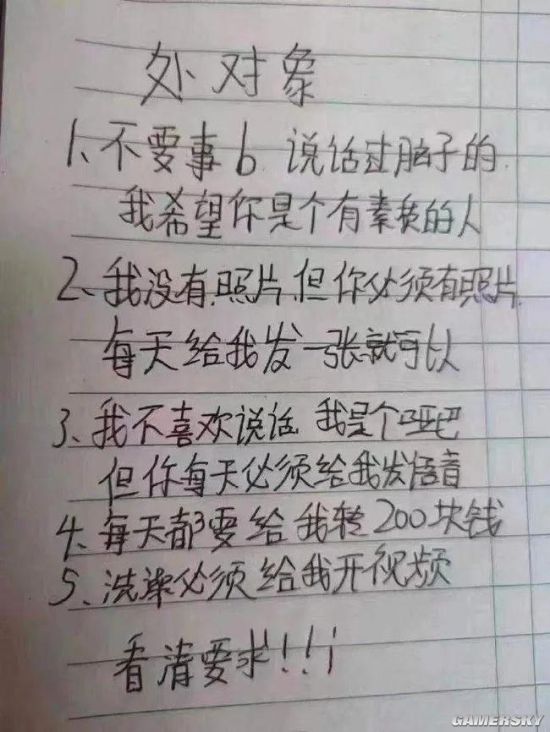 处对象
1、不要事b 说话过脑子的
我希望你是个有素质的人
2、我没有照片,但你必须有照片,
每天给我发一张就可以
3、我不喜欢说话 我是个哑吧
但你每天必须给我发语音
4、每天都要给我转200块钱
5、洗澡必须给我开视频
看清要求!!!
GAMERSKY